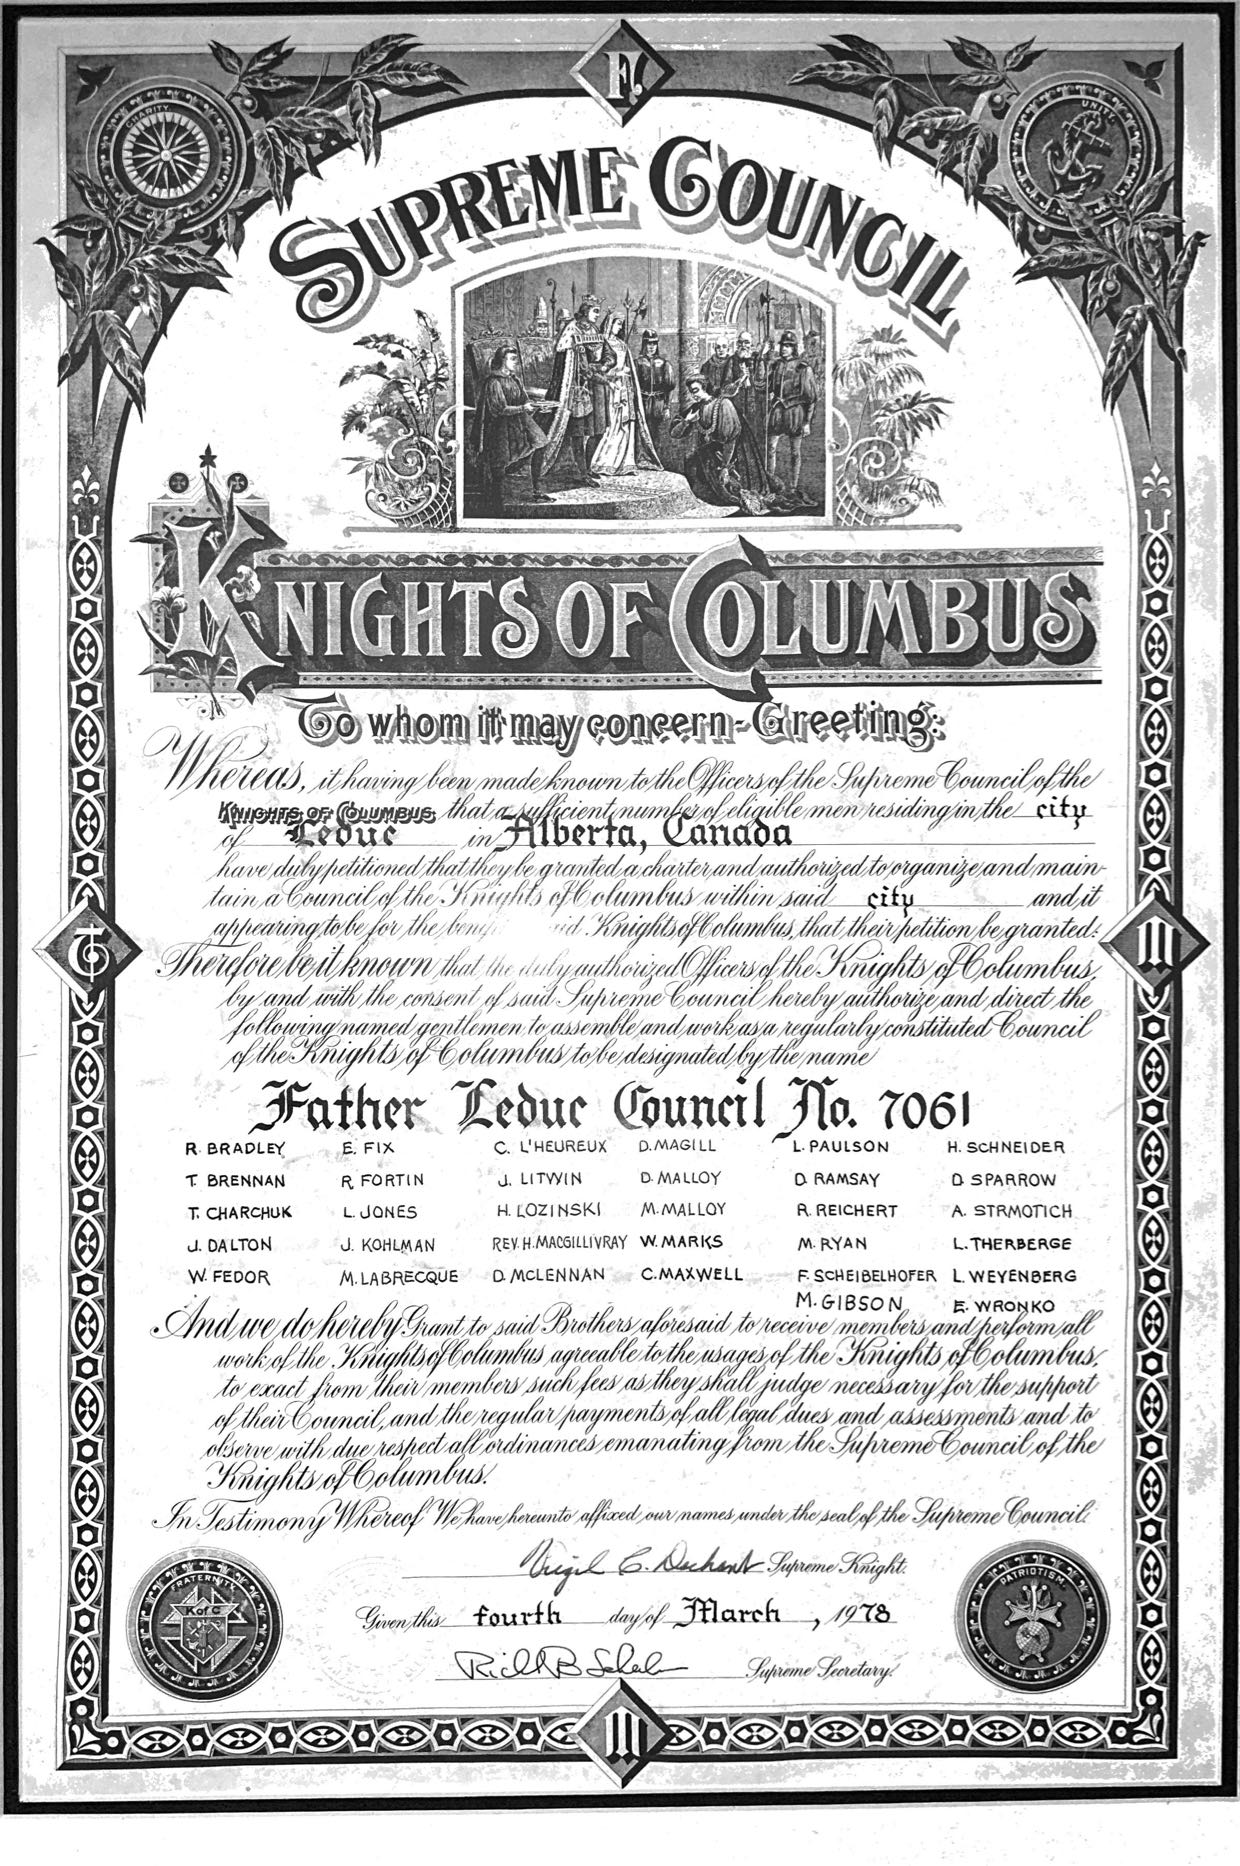 F.
CHARITY.
UNITY.
SUPREME COUNCIL
KNIGHTS OF COLUMBUS
To whom it may concern - Greeting:
Whereas, it having been made known to the Officers of the Supreme Council of the
KNIGHTS OF COLUMBUS that a sufficient number of eligible men residing in the city
of Leduc in Alberta, Canada
have duly petitioned that they be granted a charter and authorized to organize and main-
tain a Council of the Knights of Columbus within said city and it
appearing to be for the Knights of Columbus, that their petition be granted:
Therefore be it known that the duly authorized Officers of the Knights of Columbus,
by and with the consent of said Supreme Council hereby authorize and direct the
following named gentlemen to assemble and work as a regularly constituted Council
of the Knights of Columbus to be designated by the name
Father Leduc Council No. 7061
R. BRADLEY E. FIX C. L'HEUREUX D. MAGILL L. PAULSON H. SCHNEIDER
T. BRENNAN R. FORTIN J. LITWIN D. MALLOY D. RAMSAY D. SPARROW
T. CHARCHUK L. JONES H. LOZINSKI M. MALLOY R. REICHERT A. STRMOTICH
J. DALTON J. KOHLMAN REV. H. MACGILLIVRAY W. MARKS M. RYAN L. THERBERGE
W. FEDOR M. LABRECQUE D. MCLENNAN C. MAXWELL F. SCHEIBELHOFER L. WEYENBERG
M. GIBSON E. WRONKO
And we do hereby Grant to said Brothers aforesaid to receive members and perform all
work of the Knights of Columbus agreeable to the usages of the Knights of Columbus,
to exact from their members such fees as they shall judge necessary for the support
of their Council, and the regular payments of all legal dues and assessments and to
observe with due respect all ordinances emanating from the Supreme Council of the
Knights of Columbus.
In Testimony Whereof We have hereunto affixed our names under the seal of the Supreme Council.
Virgil C. Dechant Supreme Knight.
FRATERNITY.
K of C
PATRIOTISM.
Given this fourth day of March, 1978
Supreme Secretary.